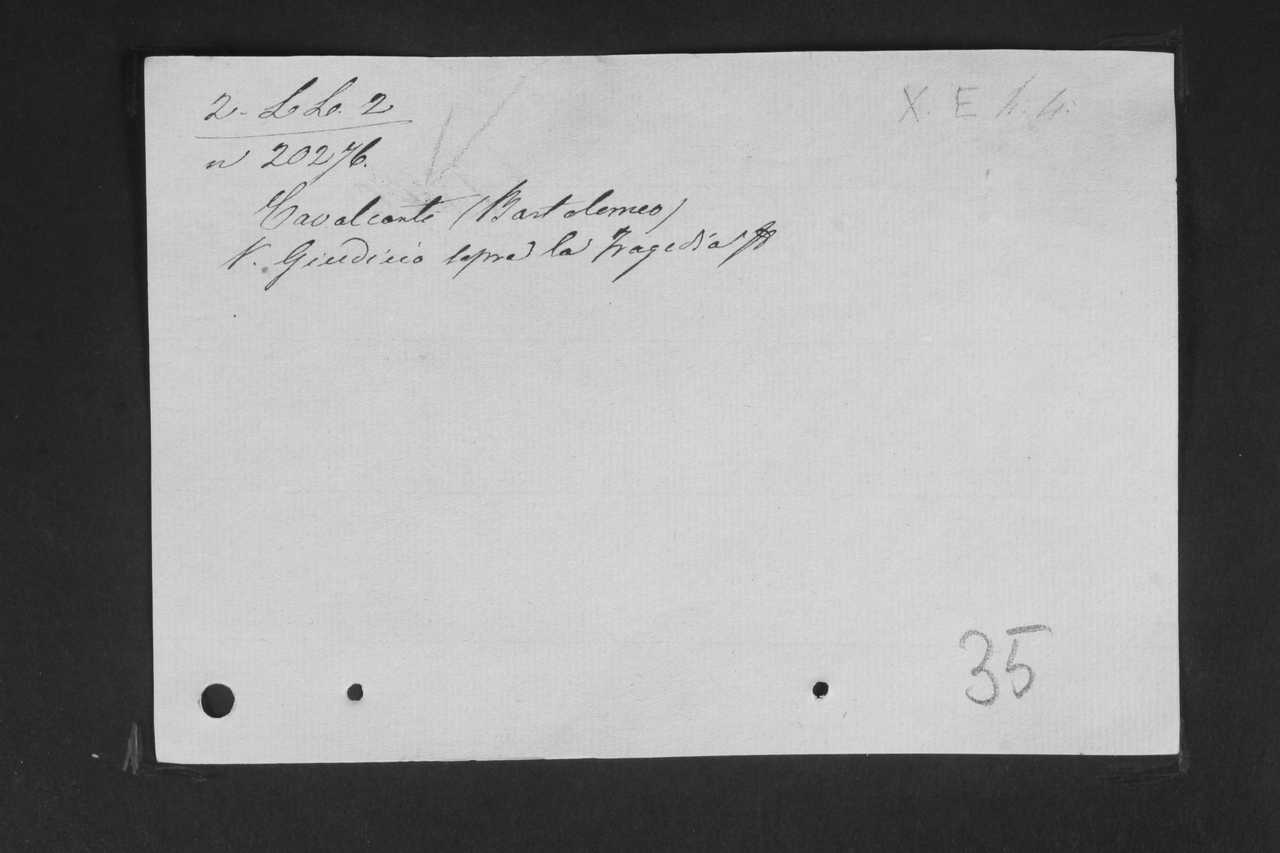 2. LL. 2
X. E h. 4.
n 20276.
Cavalcante (Bartolomeo)
V. Giudicio sopra la Tragedia
35